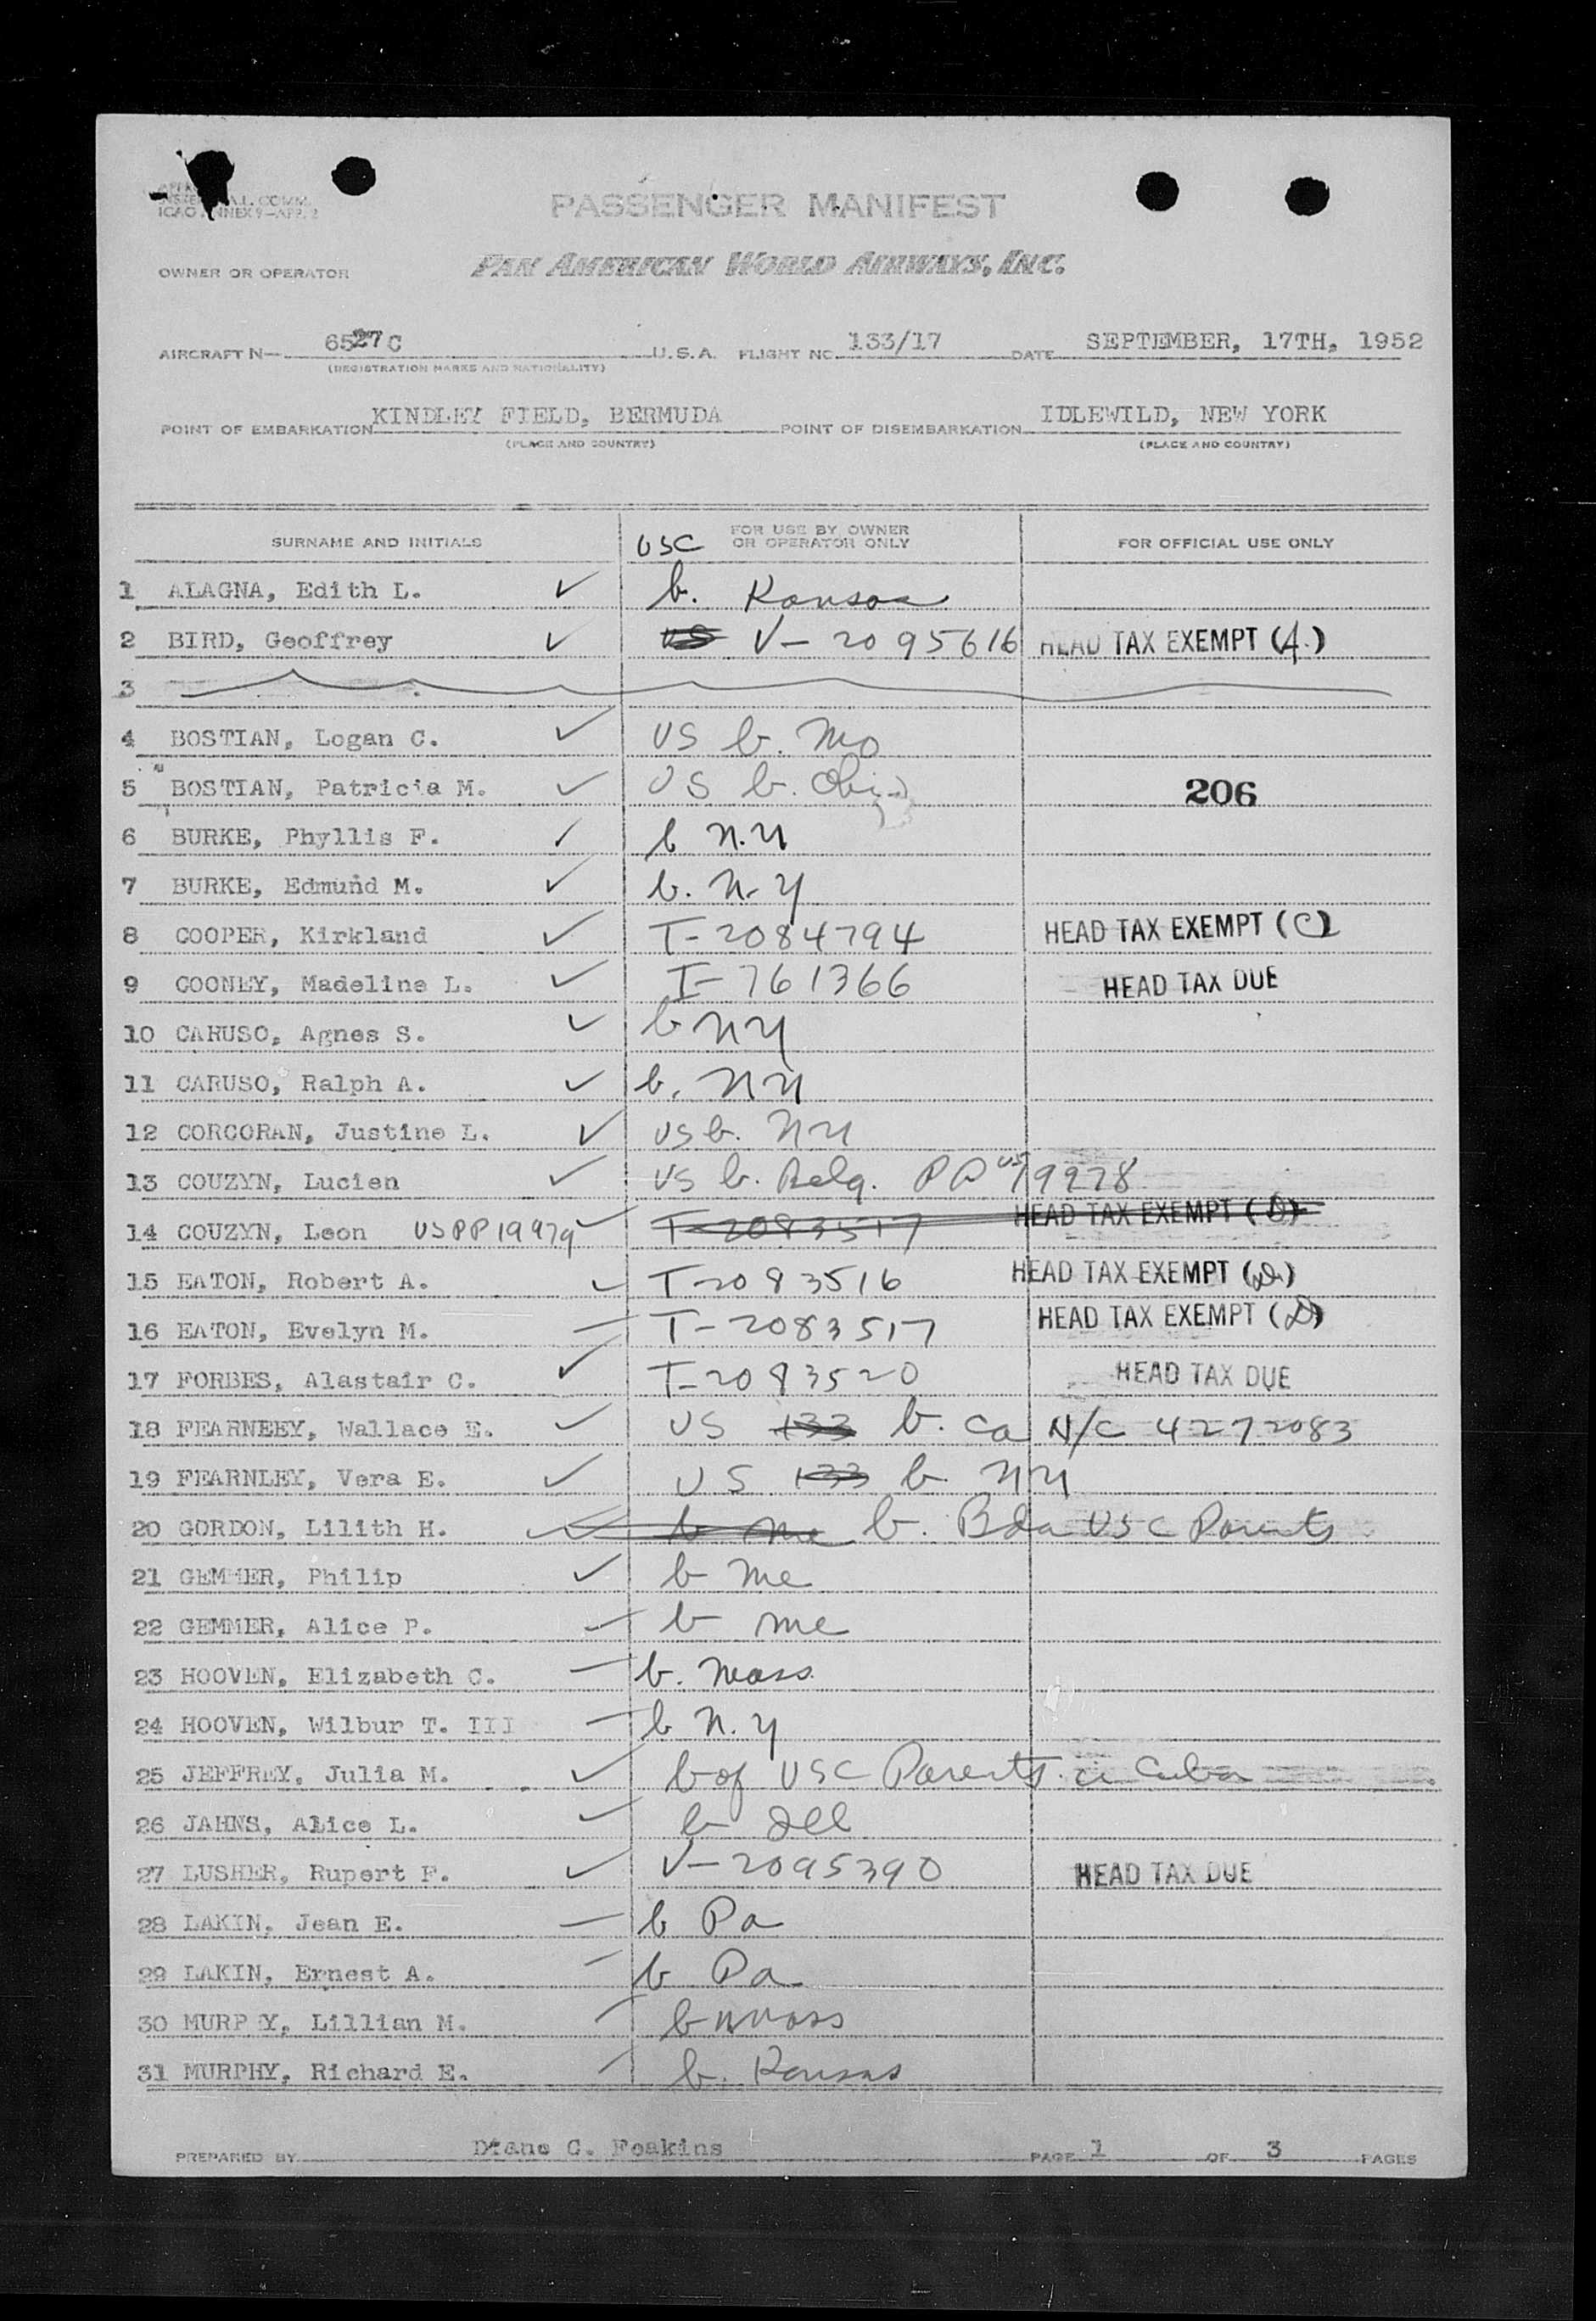 PASSENGER MANIFEST
ICAO ANNEX 9—APP. 2
OWNER OR OPERATOR PAN AMERICAN WORLD AIRWAYS, INC.
AIRCRAFT N— 6527C U.S.A. FLIGHT NO. 133/17 DATE SEPTEMBER, 17TH, 1952
(REGISTRATION MARKS AND NATIONALITY)
POINT OF EMBARKATION KINDLEY FIELD, BERMUDA POINT OF DISEMBARKATION IDLEWILD, NEW YORK
(PLACE AND COUNTRY) (PLACE AND COUNTRY)
SURNAME AND INITIALS USC FOR USE BY OWNER OR OPERATOR ONLY FOR OFFICIAL USE ONLY
1 ALAGNA, Edith L. ✓ b. Kansas
2 BIRD, Geoffrey ✓ US V-2095616 HEAD TAX EXEMPT (A.)
3
4 BOSTIAN, Logan C. ✓ US b. Mo
5 BOSTIAN, Patricia M. ✓ US b. Ohio 206
6 BURKE, Phyllis F. ✓ b N.Y
7 BURKE, Edmund M. ✓ b. N.Y
8 COOPER, Kirkland ✓ T-2084794 HEAD TAX EXEMPT (C)
9 COONEY, Madeline L. ✓ I-761366 HEAD TAX DUE
10 CARUSO, Agnes S. ✓ b NY
11 CARUSO, Ralph A. ✓ b. NY
12 CORCORAN, Justine L. ✓ US b. NY
13 COUZYN, Lucien ✓ US b. Belg. PP US 19978
14 COUZYN, Leon USPP19979 ✓ T-2083517 HEAD TAX EXEMPT (D)
15 EATON, Robert A. ✓ T-2083516 HEAD TAX EXEMPT (D)
16 EATON, Evelyn M. T-2083517 HEAD TAX EXEMPT (D)
17 FORBES, Alastair C. ✓ T-2083520 HEAD TAX DUE
18 FEARNLEY, Wallace E. ✓ US 133 b. Ca N/C 4272083
19 FEARNLEY, Vera E. ✓ US 133 b NY
20 GORDON, Lilith H. ✓ b Me b. Bda USC Parents
21 GEMMER, Philip ✓ b Me
22 GEMMER, Alice P. b Me
23 HOOVEN, Elizabeth C. b. Mass.
24 HOOVEN, Wilbur T. III b N.Y
25 JEFFREY, Julia M. ✓ b of USC Parents in Cuba
26 JAHNS, Alice L. ✓ b Ill
27 LUSHER, Rupert F. ✓ V-2095390 HEAD TAX DUE
28 LAKIN, Jean E. b Pa
29 LAKIN, Ernest A. b Pa
30 MURPHY, Lillian M. b Mass
31 MURPHY, Richard E. b. Kansas
PREPARED BY Diane C. Feakins PAGE 1 OF 3 PAGES